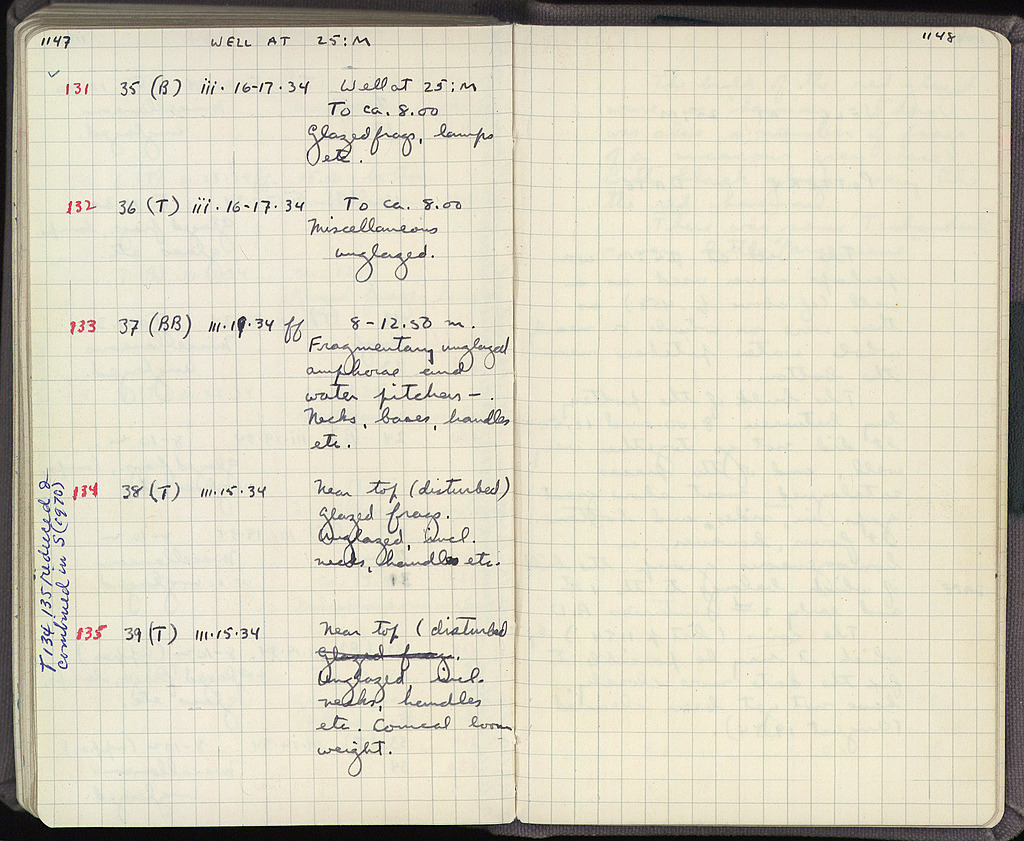 1147
WELL AT 25:M
1148
✓
131 35 (B) iii. 16-17.34 Well at 25:M
To ca. 8.00
Glazed frags, lamps
etc.
132 36 (T) iii. 16-17.34 To ca. 8.00
Miscellaneous
unglazed.
133 37 (BB) III.19.34 ff 8-12.50 m.
Fragmentary unglazed
amphorae and
water pitchers -.
Necks, bases, handles
etc.
134 38 (T) III.15.34 Near top (disturbed)
Glazed frags.
Unglazed, incl.
necks, handles etc.
T 134, 135 reduced &
combined in S (1970)
135 39 (T) III.15.34 Near top (disturbed
Glazed frag.
Unglazed incl.
necks, handles
etc. Conical loom
weight.